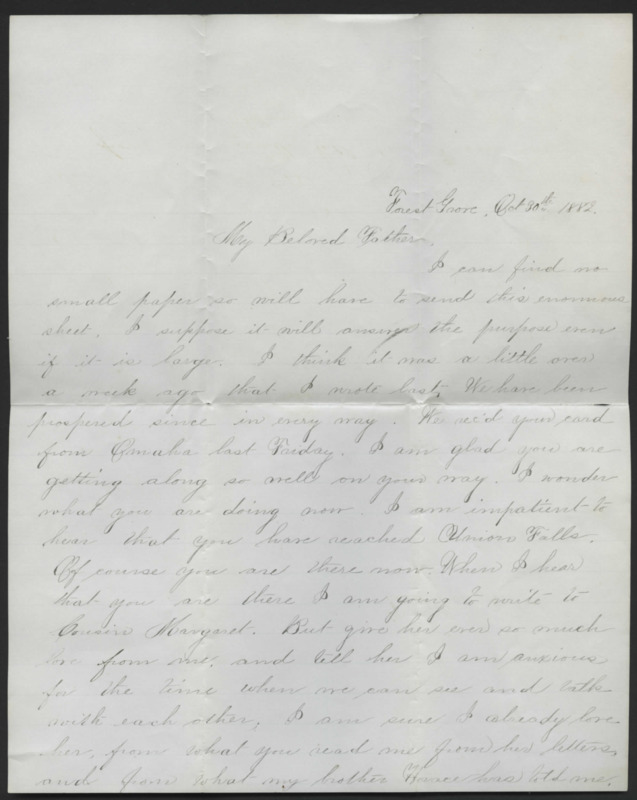 Forest Grove, Oct 30th 1882.
My Beloved Father,
I can find no
small paper so will have to send this enormous
sheet. I suppose it will answer the purpose even
if it is large. I think it was a little over
a week ago that I wrote last. We have been
prospered since in every way. We rec'd your card
from Omaha last Friday. I am glad you are
getting along so well on your way. I wonder
what you are doing now. I am impatient to
hear that you have reached Union Falls.
Of course you are there now. When I hear
that you are there I am going to write to
Cousin Margaret. But give her ever so much
love from me, and tell her I am anxious
for the time when we can see and talk
with each other, I am sure I already love
her, from what you read me from her letters,
and from what my brother Horace has told me.